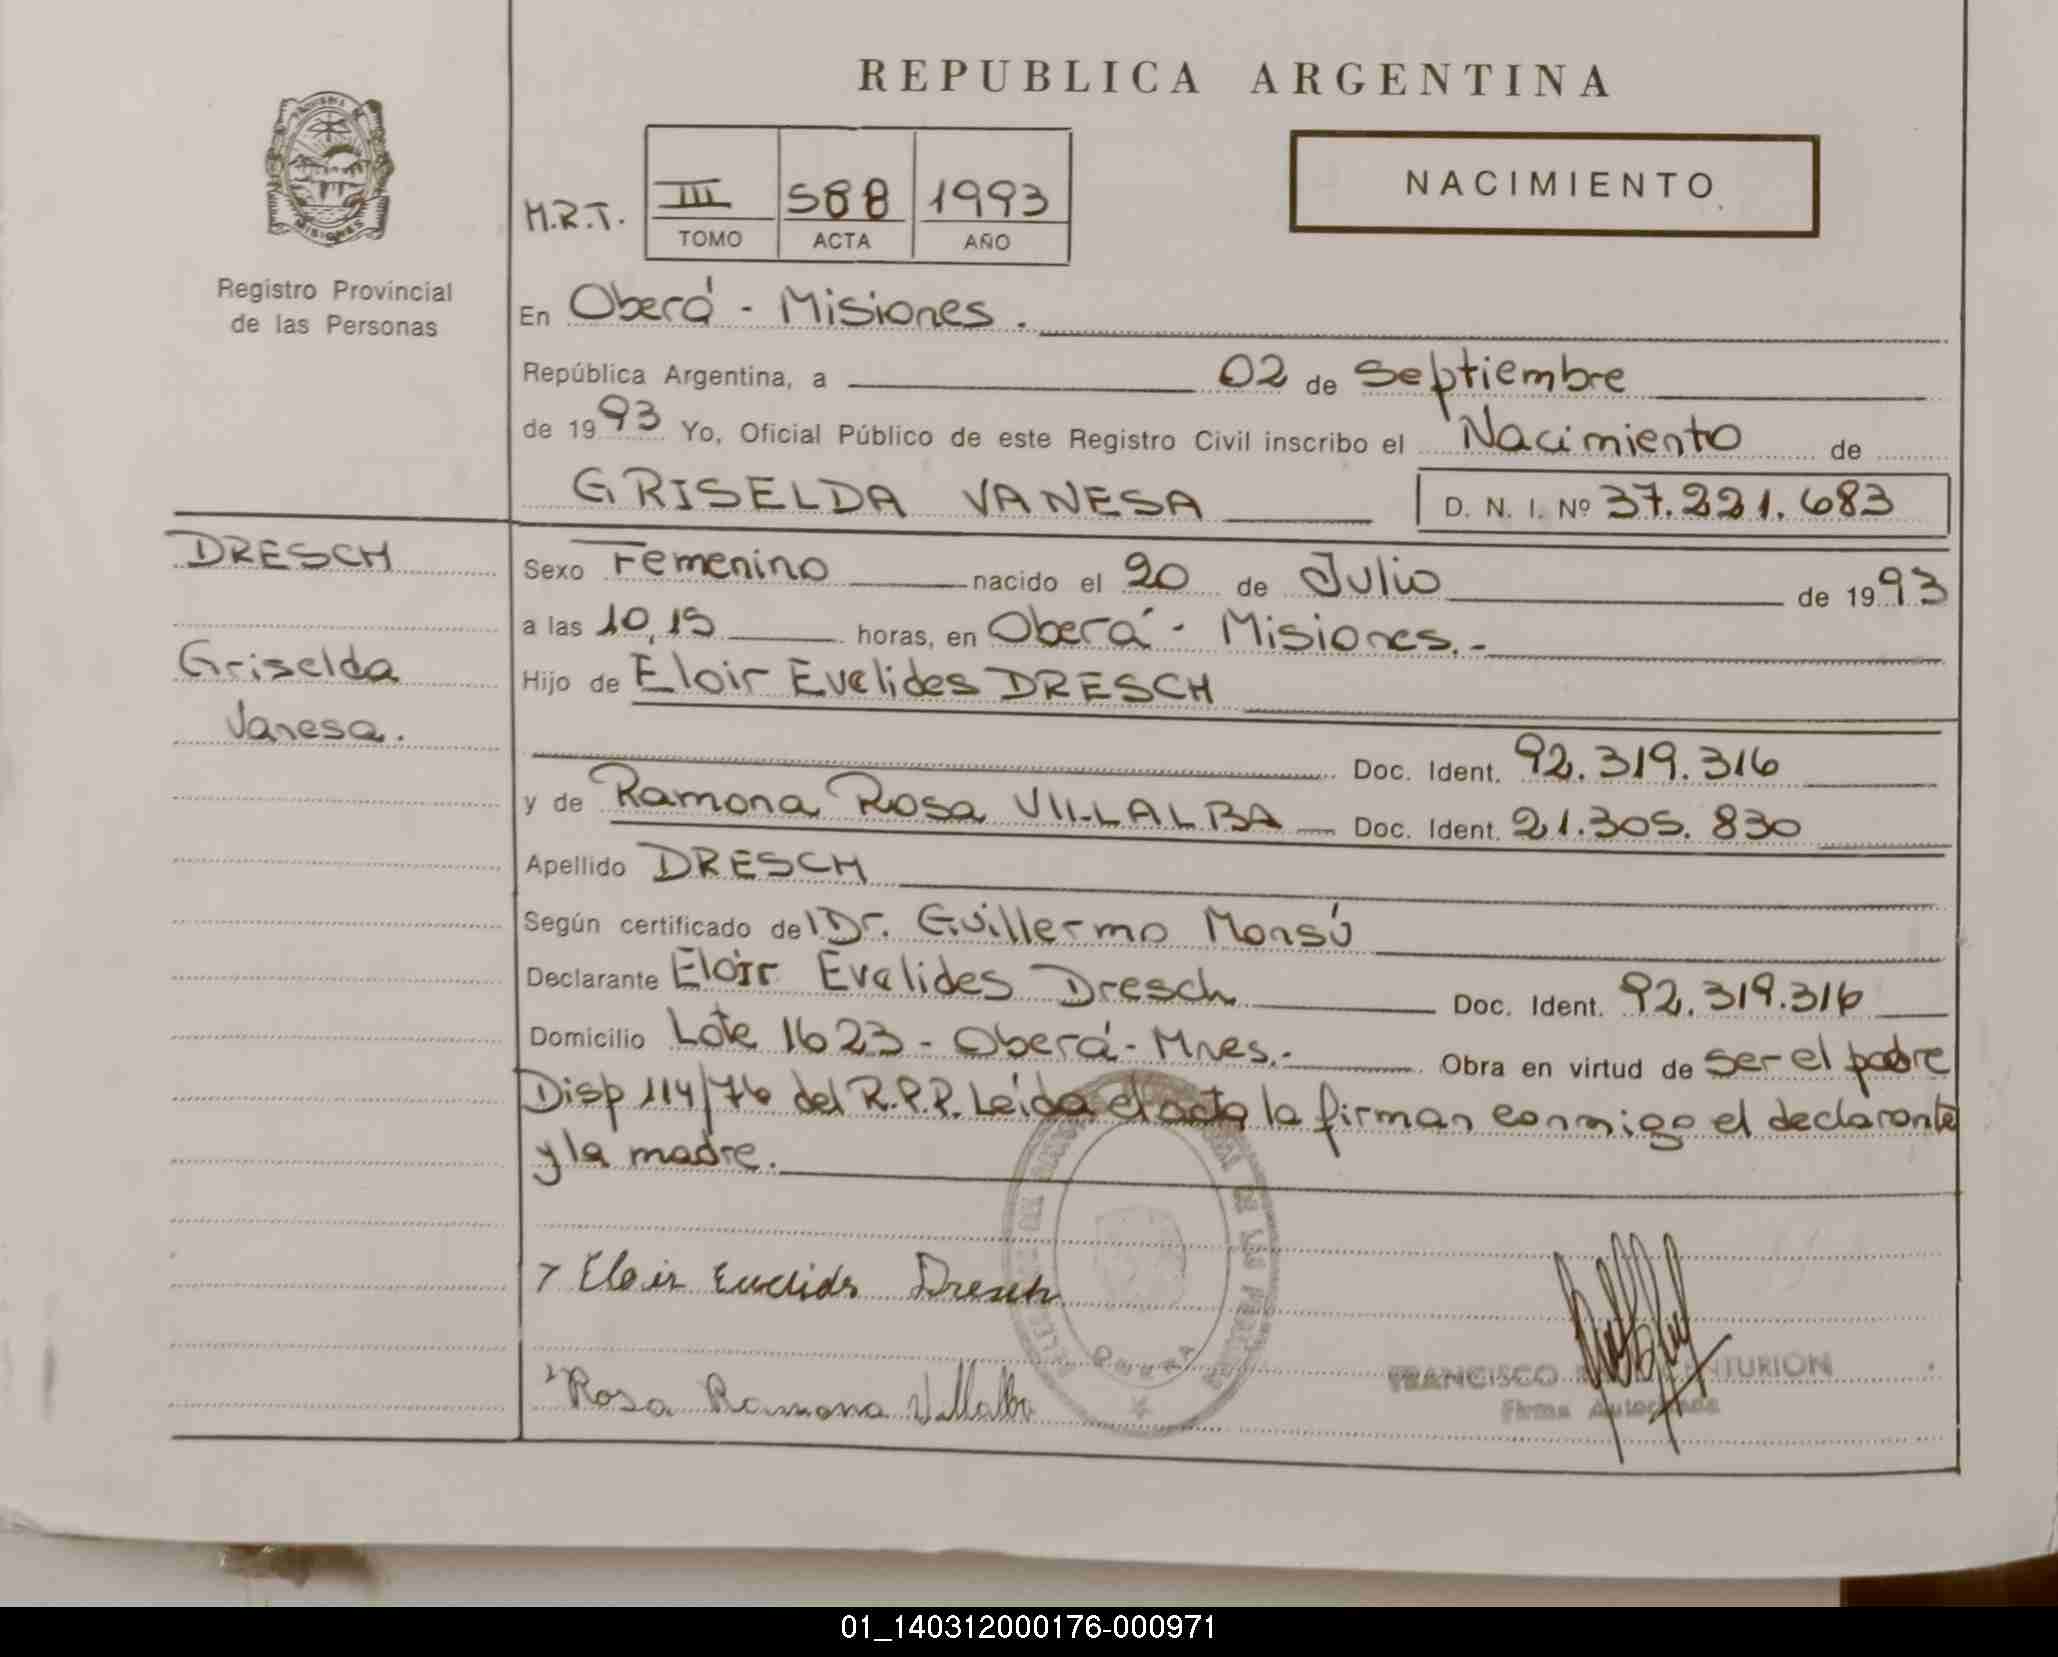 REPUBLICA ARGENTINA
PROVINCIA DE
MISIONES
Registro Provincial
de las Personas
NACIMIENTO
M.R.T.
III 588 1993
TOMO ACTA AÑO
En Oberá - Misiones.
República Argentina, a 02 de Septiembre
de 1993 Yo, Oficial Público de este Registro Civil inscribo el Nacimiento de
GRISELDA VANESA D. N. I. Nº 37.221.683
DRESCH
Griselda
Vanesa.
Sexo Femenino nacido el 20 de Julio de 1993
a las 10,15 horas, en Oberá - Misiones.-
Hijo de Eloir Euclides DRESCH
Doc. Ident. 92.319.316
y de Ramona Rosa VILLALBA Doc. Ident. 21.305.830
Apellido DRESCH
Según certificado del Dr. Guillermo Monsú
Declarante Eloir Euclides Dresch Doc. Ident. 92.319.316
Domicilio Lote 1623 - Oberá - Mnes.- Obra en virtud de ser el padre
Disp 114/76 del R.P.P. Leída el acta la firman conmigo el declarante
y la madre.
Eloir Euclides Dresch
Rosa Ramona Villalba
DE LAS PERSONAS
OBERA
FRANCISCO CENTURION
Firma Autorizada
01_140312000176-000971